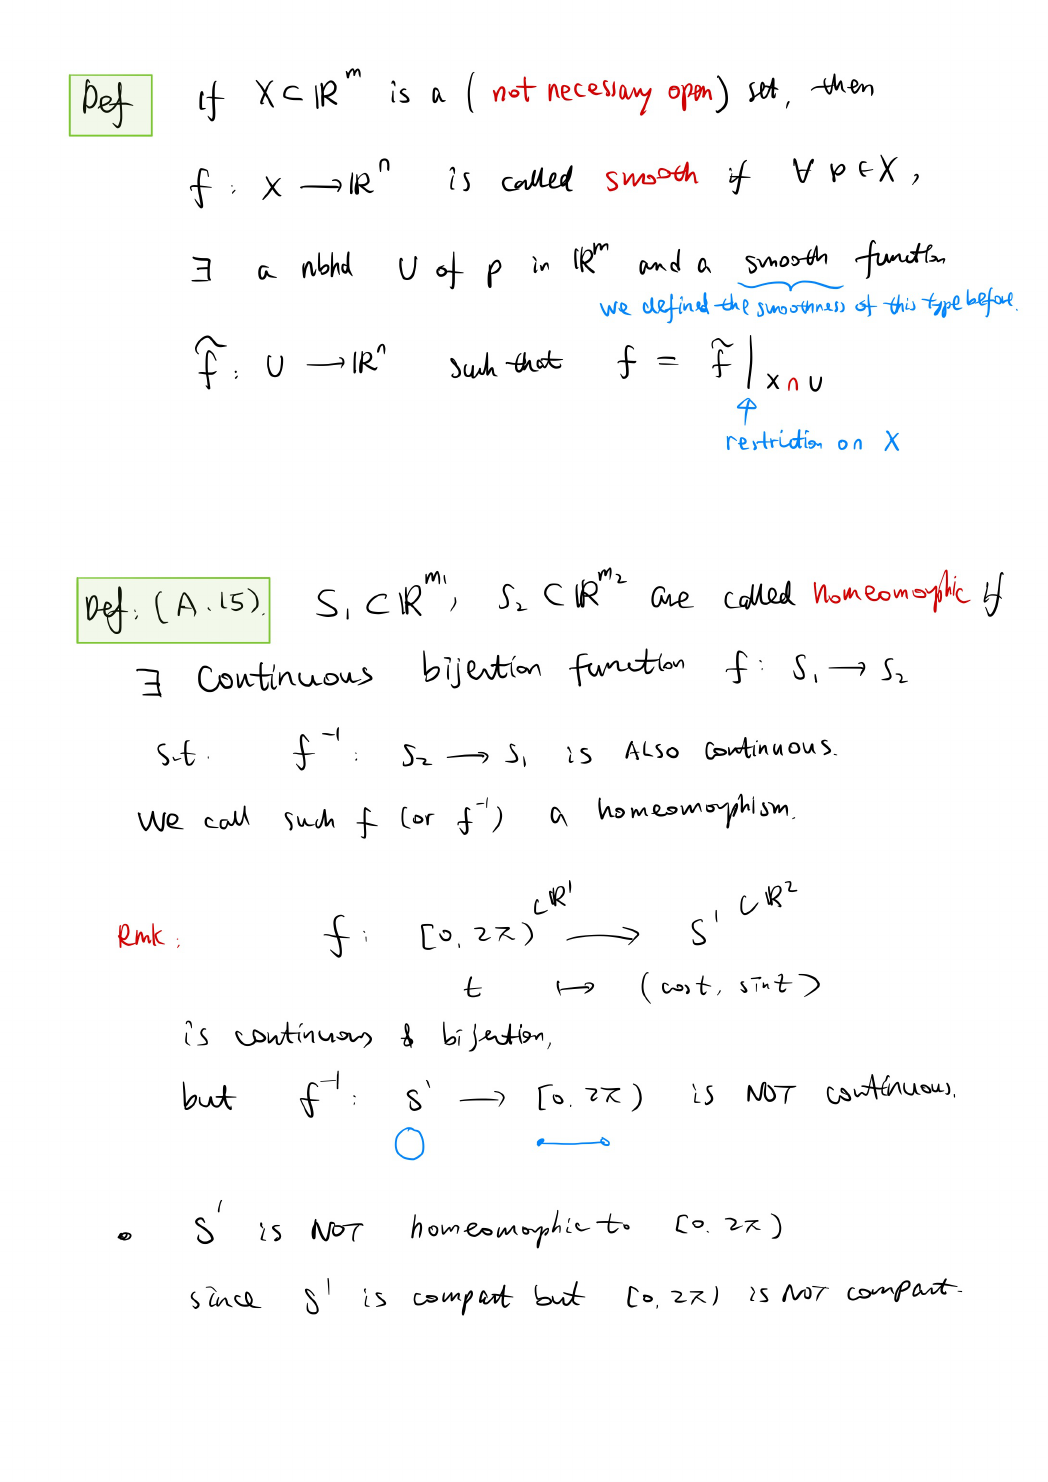 Def If X ⊂ ℝ^m is a (not necessary open) set, then
f : X → ℝ^n is called smooth if ∀ p ∈ X,
∃ a nbhd U of p in ℝ^m and a smooth function
we defined the smoothness of this type before.
f̃ : U → ℝ^n such that f = f̃ |_{X ∩ U}
restriction on X
Def: (A.15). S₁ ⊂ ℝ^{m₁}, S₂ ⊂ ℝ^{m₂} are called homeomorphic if
∃ continuous bijection function f: S₁ → S₂
s.t. f⁻¹ : S₂ → S₁ is ALSO continuous.
We call such f (or f⁻¹) a homeomorphism.
Rmk : f : [0, 2π) ⊂ ℝ¹ → S¹ ⊂ ℝ²
t ↦ (cos t, sin t)
is continuous & bijection,
but f⁻¹ : S¹ → [0, 2π) is NOT continuous.
• S¹ is NOT homeomorphic to [0, 2π)
since S¹ is compact but [0, 2π) is NOT compact.